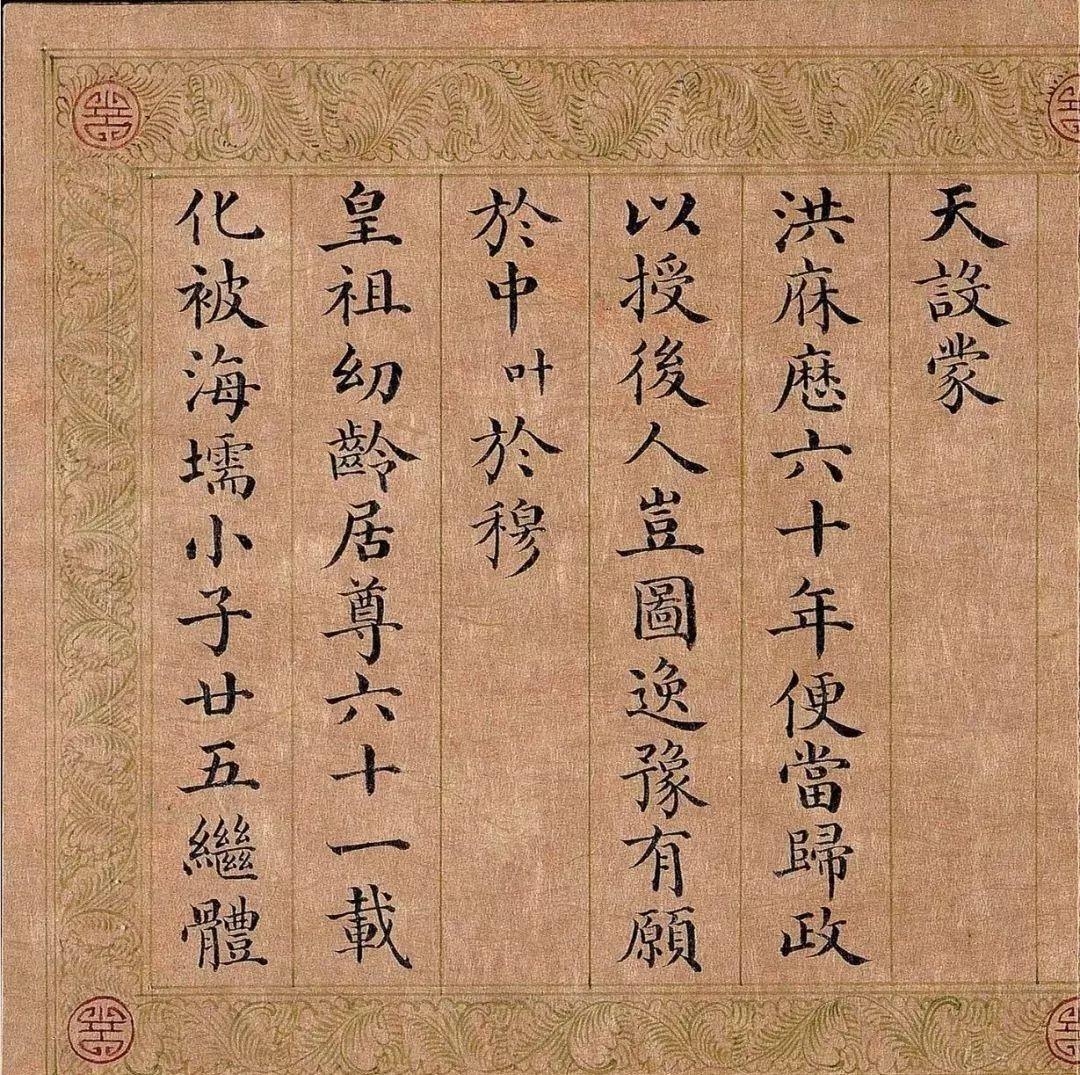 天設蒙
洪庥歷六十年便當歸政
以授後人豈圖逸豫有願
於中叶於穆
皇祖幼齡居尊六十一載
化被海壖小子廿五繼體